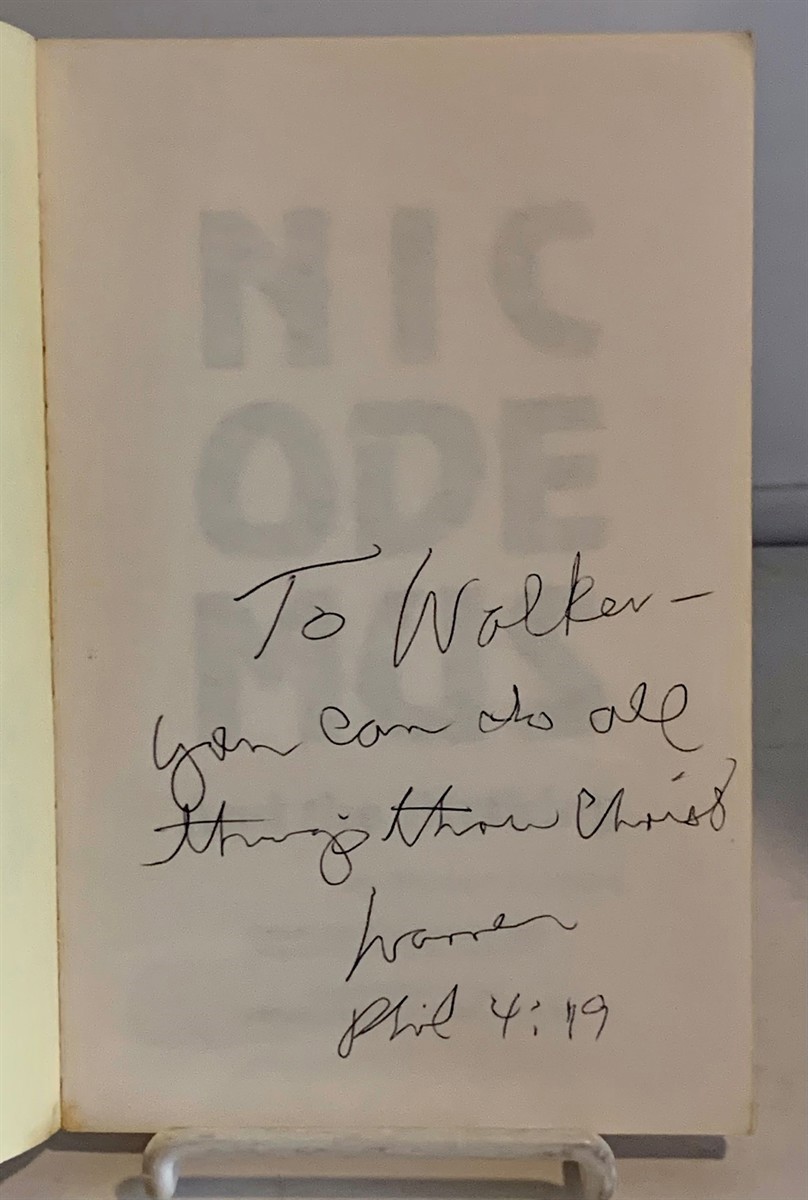 NIC
ODE
MUS
To Walker –
you can do all
things thru Christ
Warren
Phil 4:19